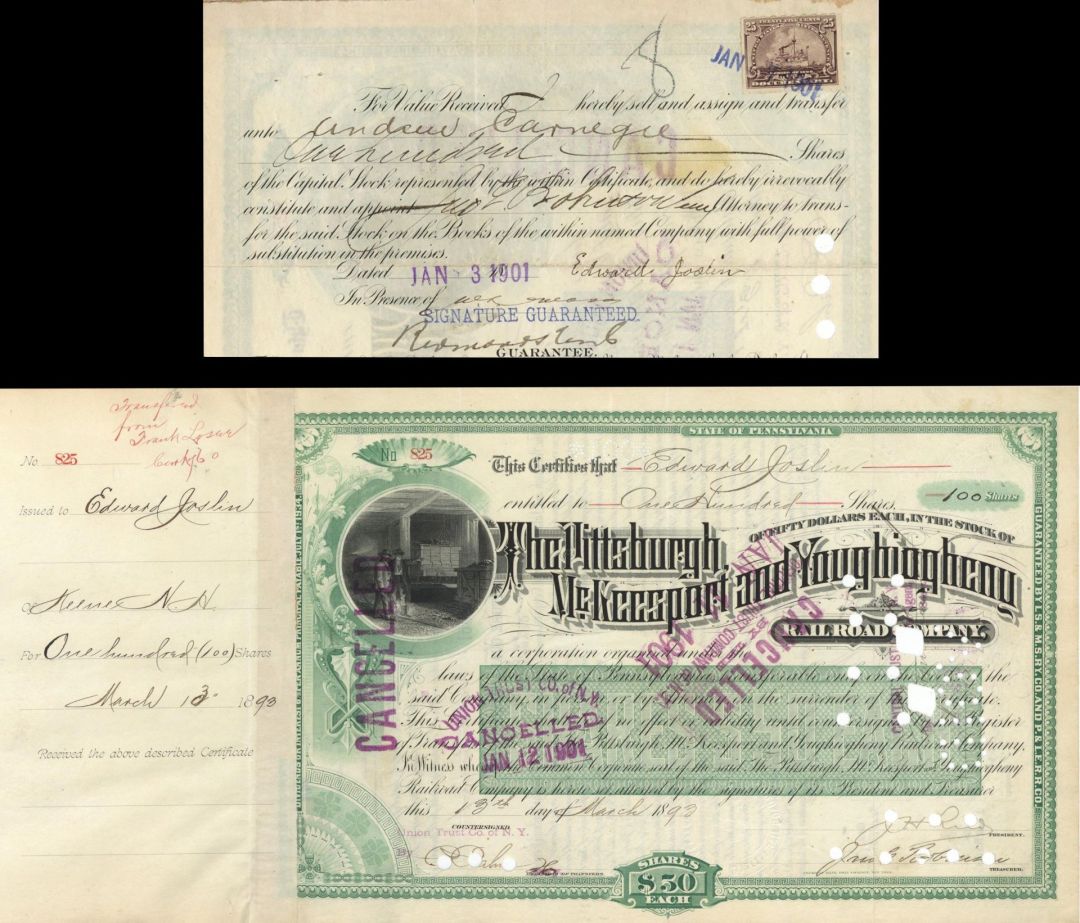 8
TWENTY FIVE CENTS
25 25
JAN 1901
DOCUMENTARY
For Value Received I hereby sell and assign and transfer
unto Andrew Carnegie
One hundred Shares
of the Capital Stock represented by the within Certificate, and do hereby irrevocably
constitute and appoint Attorney to trans-
fer the said Stock on the Books of the within named Company with full power of
substitution in the premises.
Dated JAN 3 1901 Edward Joslin
In Presence of
SIGNATURE GUARANTEED.
GUARANTEE.
Transferred
from
Frank
No. 825
Issued to Edward Joslin
of Keene N.H.
For One hundred (100) Shares
March 13 1893
Received the above described Certificate
STATE OF PENNSYLVANIA
No 825
This Certifies that Edward Joslin
entitled to One Hundred Shares,
100 Shares
OF FIFTY DOLLARS EACH, IN THE STOCK OF
The Pittsburgh,
McKeesport and Youghiogheny
RAILROAD COMPANY.
a corporation organized under the
laws of the State of Pennsylvania, transferable on the books of the
said Company, in person or by attorney, on the surrender of this Certificate.
This Certificate of no effect or validity until countersigned by the Register
of Transfers of the Pittsburgh, McKeesport and Youghiogheny Railroad Company.
In Witness whereof the Common Corporate seal of the said The Pittsburgh, McKeesport and Youghiogheny
Railroad Company is hereto attested by the signatures of its President and Treasurer
this 13th day of March 1893
COUNTERSIGNED
Union Trust Co. of N. Y.
PRESIDENT.
TREASURER.
SHARES
$50
EACH
CANCELLED
UNION TRUST CO. of N.Y.
CANCELLED
JAN 12 1901
CANCELLED
GUARANTEED BY L.S. & M.S. RY. CO. AND P. & L.E. R.R. CO.